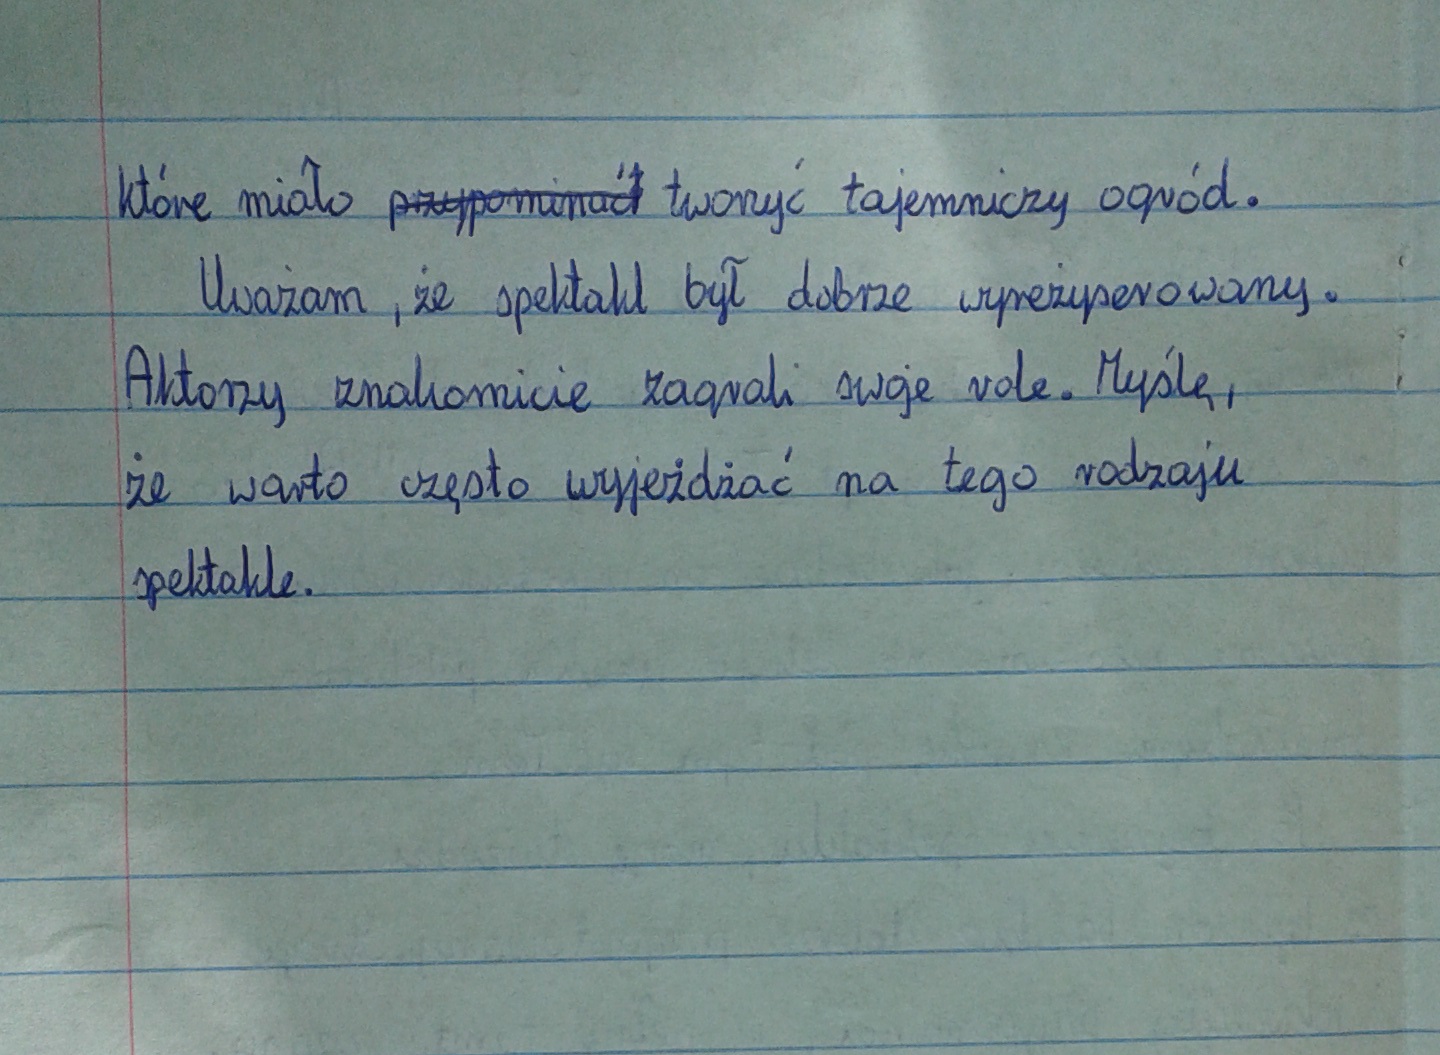 które miało przypominać tworzyć tajemniczy ogród.
Uważam, że spektakl był dobrze wyreżyserowany.
Aktorzy znakomicie zagrali swoje role. Myślę,
że warto często wyjeżdżać na tego rodzaju
spektakle.